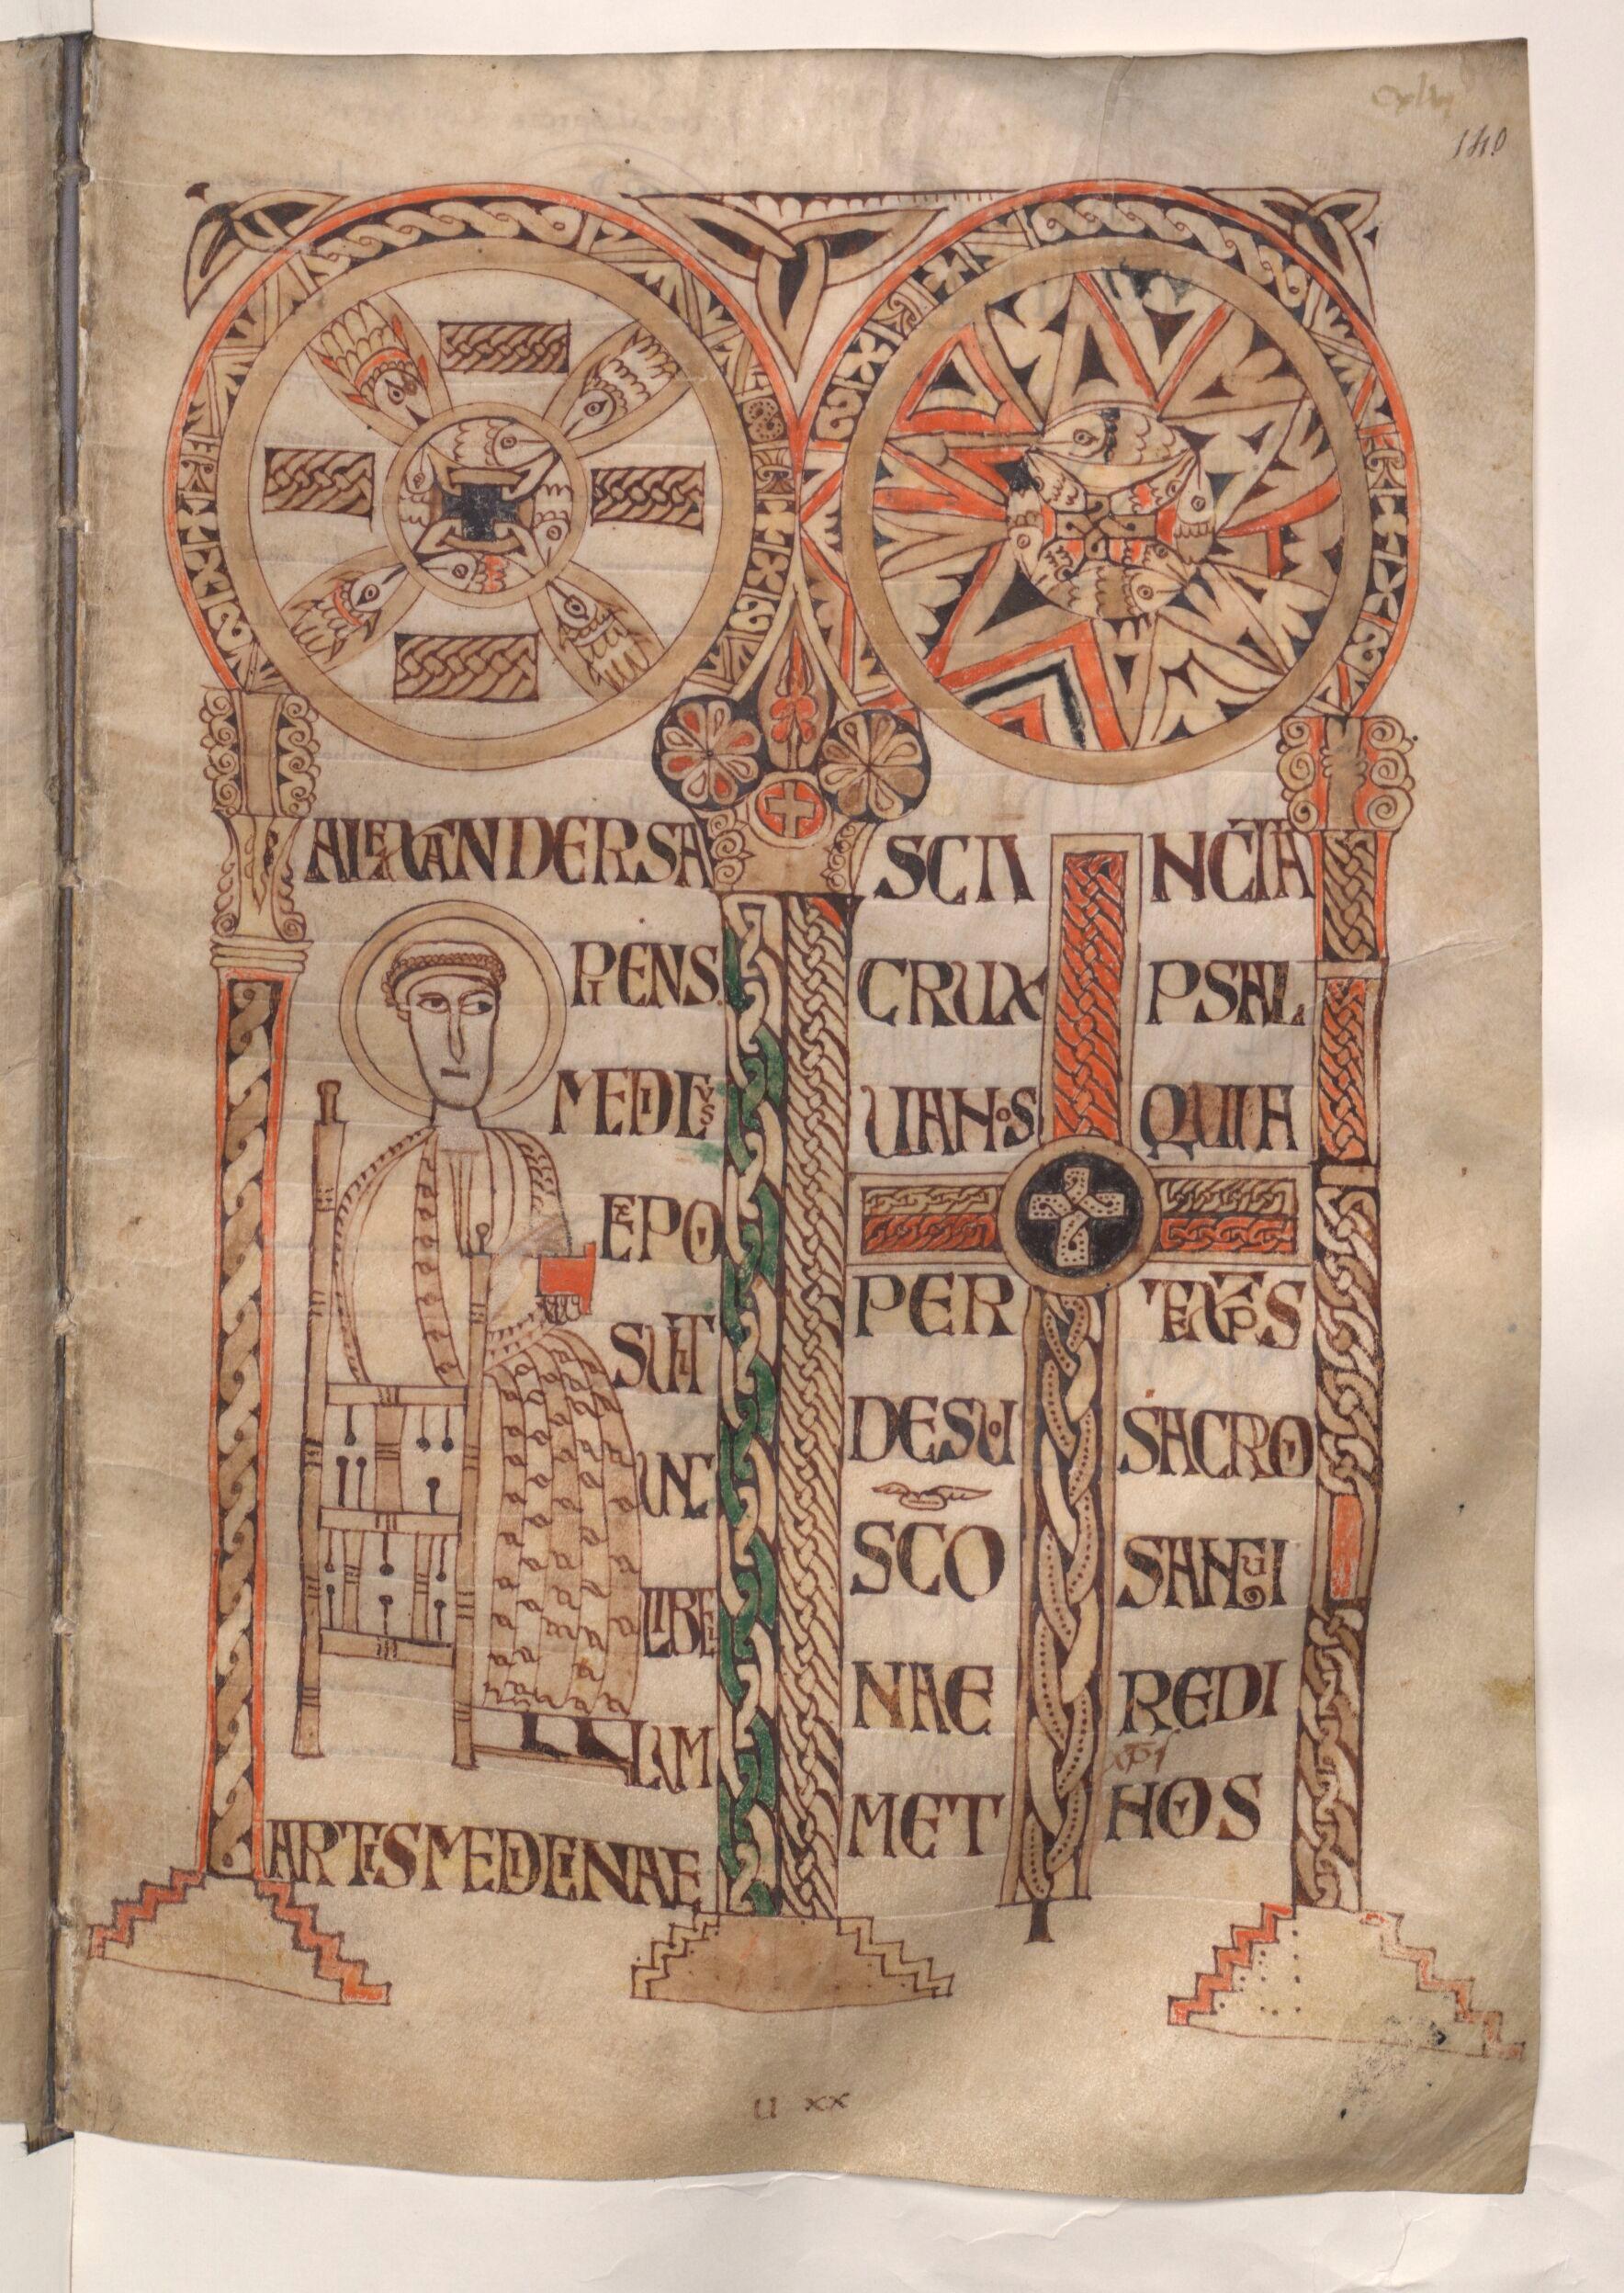 140
ALEXANDER SA
PIENS
MEDICVS
EXPO
SUIT
UNC
LIBEL
LUM
ARTIS MEDICINAE
SCA NCTA
CRUX PSAL
UANOS QUIA
PER TE XPS
DE SUO SACRO
SCO SANGUI
NAE REDI
xpi
MET HOS
u xx